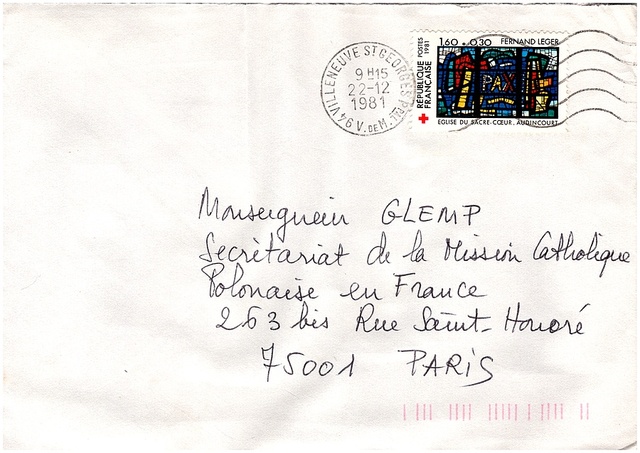 1,60 + 0,30 FERNAND LEGER
RÉPUBLIQUE FRANÇAISE
POSTES 1981
PAX
EGLISE DU SACRE-CŒUR. AUDINCOURT
94 VILLENEUVE ST GEORGES Ppal
9 H15
22-12
1981
V. DE M.
Monseigneur GLEMP
Secrétariat de la Mission Catholique
Polonaise en France
263 bis Rue Saint-Honoré
75001 PARIS